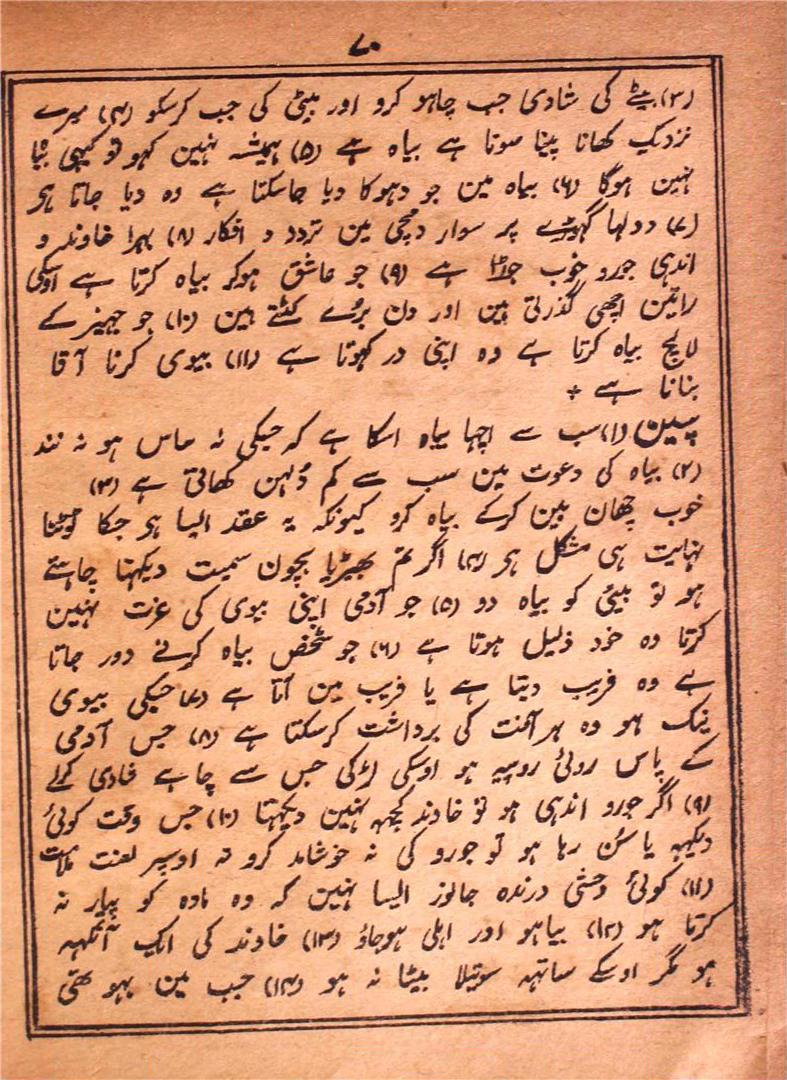 ۷۰
(۳) بیٹے کی شادی جب چاہو کرو اور بیٹی کی جب کرسکو (۴) میرے
نزدیک کھانا پینا سونا ہے بیاہ ہے (۵) ہمیشہ نہین کہو تو کبہی بیا
نہین ہوگا (۶) بیاہ مین جو دہوکا دیا جاسکتا ہے وہ دیا جاتا ہی
(۷) دولہا گہوڑے پر سوار دمچی مین تردد و افکار (۸) بہرا خاوند و
اندہی جورو خوب جوڑا ہے (۹) جو عاشق ہوکر بیاہ کرتا ہے اوسکی
راتین اچھی گذرتی ہین اور دن بُرے کٹتے ہین (۱۰) جو جہیز کے
لالچ بیاہ کرتا ہے وہ اپنی در کہوتا ہے (۱۱) بیوی کرنا آقا
بنانا ہے *
سپین (۱) سب سے اچہا بیاہ اسکا ہے کہ جسکی نہ ساس ہو نہ نند
(۲) بیاہ کی دعوت مین سب سے کم دُلہن کھاتی ہے (۳)
خوب چھان بین کرکے بیاہ کرو کیونکہ یہ عقد ایسا ہی جسکا ٹوٹنا
نہایت ہی مشکل ہی (۴) اگر تم بھیڑیا بچون سمیت دیکہنا چاہتے
ہو تو بیٹی کو بیاہ دو (۵) جو آدمی اپنی بیوی کی عزت نہین
کرتا وہ خود ذلیل ہوتا ہے (۶) جو شخص بیاہ کرنے دور جاتا
ہے وہ فریب دیتا ہے یا فریب مین آتا ہے (۷) جسکی بیوی
نیک ہو وہ ہر آفت کی برداشت کرسکتا ہے (۸) جس آدمی
کے پاس روئی روپیہ ہو اوسکی لڑکی جس سے چاہے شادی کرلے
(۹) اگر جورو اندہی ہو تو خاوند کچہہ نہین دیکہتا (۱۰) جس وقت کوئی
دیکہہ یا سُن رہا ہو تو جورو کی نہ خوشامد کرو نہ اوسپر لعنت ملامت
(۱۱) کوئی وحشی درندہ جانور ایسا نہین کہ وہ مادہ کو پیار نہ
کرتا ہو (۱۲) بیاہو اور اہلی ہوجاؤ (۱۳) خاوند کی ایک آنکہہ
ہو مگر اوسکے ساتہہ سوتیلا بیٹا نہ ہو (۱۴) جب مین بہو تھی